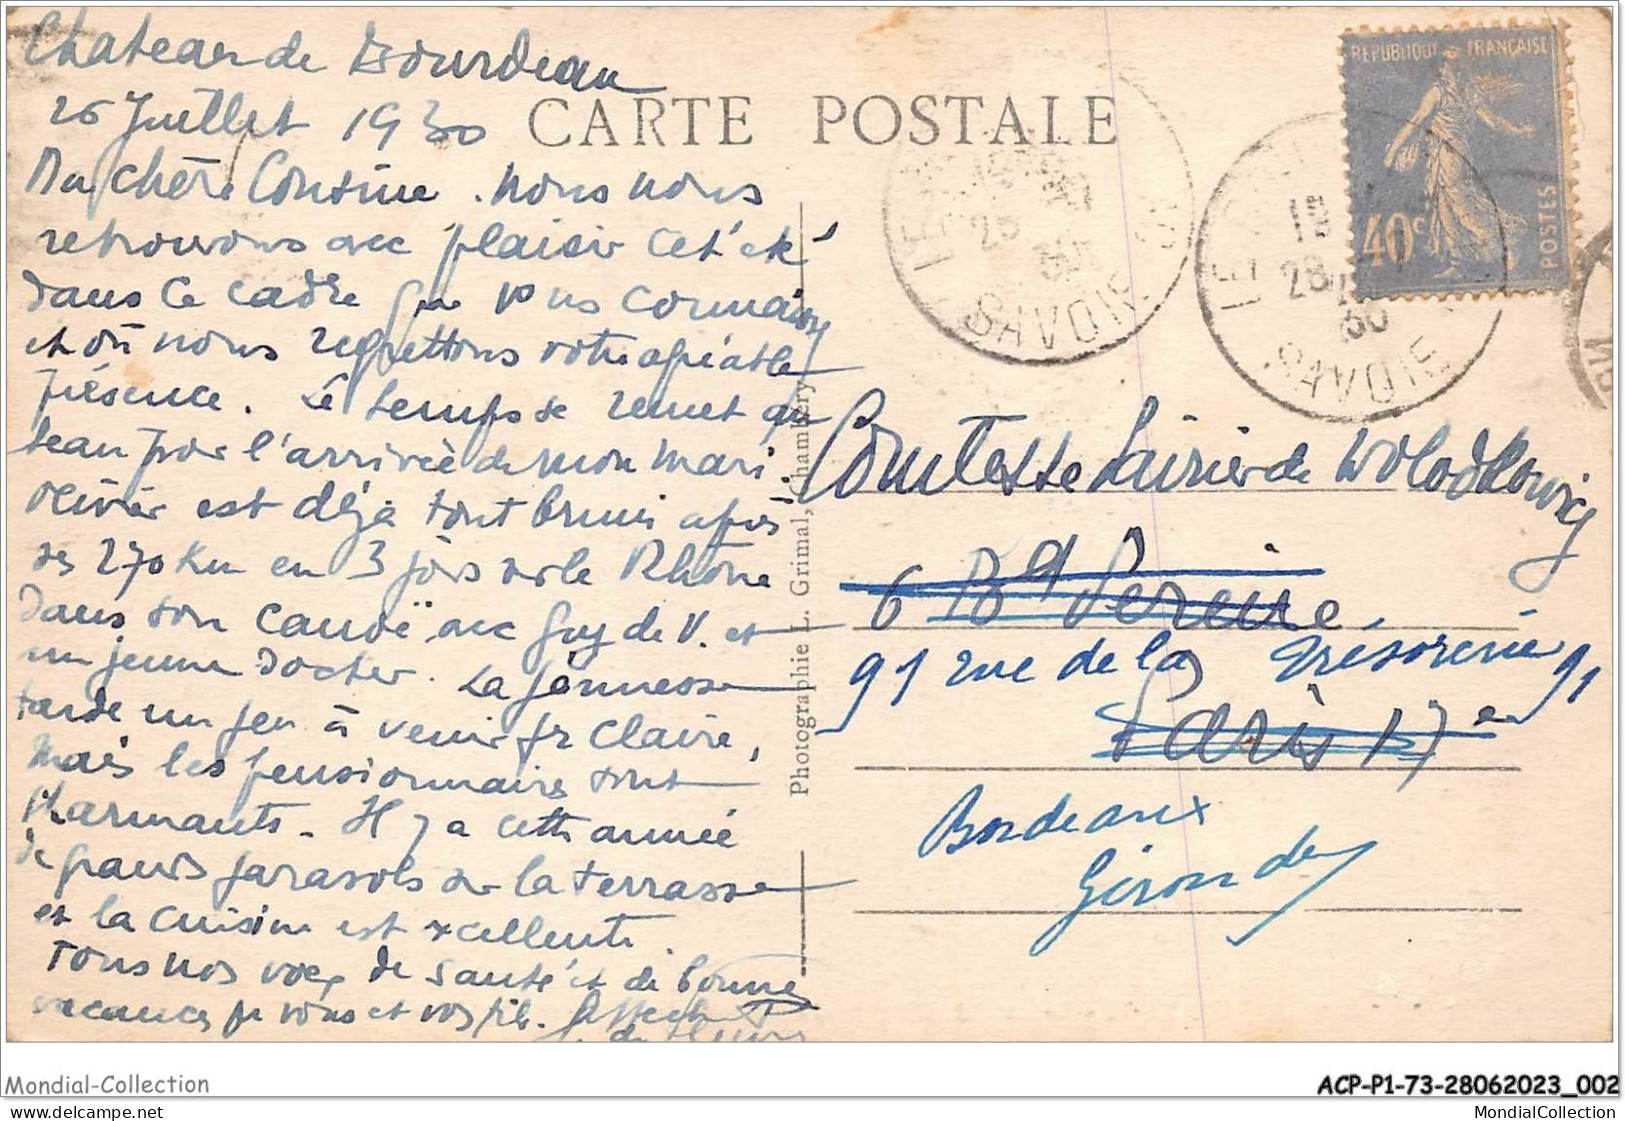 Chateau de Bourdeau
26 Juillet 1930
CARTE POSTALE
Ma chère Cousine. Nous nous
retrouvons avec plaisir cet été
dans ce cadre que vous connaissez
et où nous regrettons votre agréable
présence. Le temps se remet au
beau pour l'arrivée de mon mari.
Olivier est déjà tout bruni après
ses 270 Km en 3 jours sur le Rhône
dans son canoë avec Guy de V. et
un jeune docker. La jeunesse
tarde un peu à venir pr Claire,
mais les pensionnaires sont
charmants - Il y a cette année
de grands parasols sur la terrasse
et la cuisine est excellente.
Tous nos voeux de santé et de bonnes
vacances pr vous et vos fils.
Photographie L. Grimal, Chambéry
REPUBLIQUE FRANÇAISE
40c
POSTES
SAVOIE
28
30
SAVOIE
Comtesse de Wolodkowicz
6 Bd Pereire
91 rue de la Trésorerie 91
Paris 17e
Bordeaux
Gironde
Mondial-Collection
ACP-P1-73-28062023_002
Mondial-Collection
MondialCollection